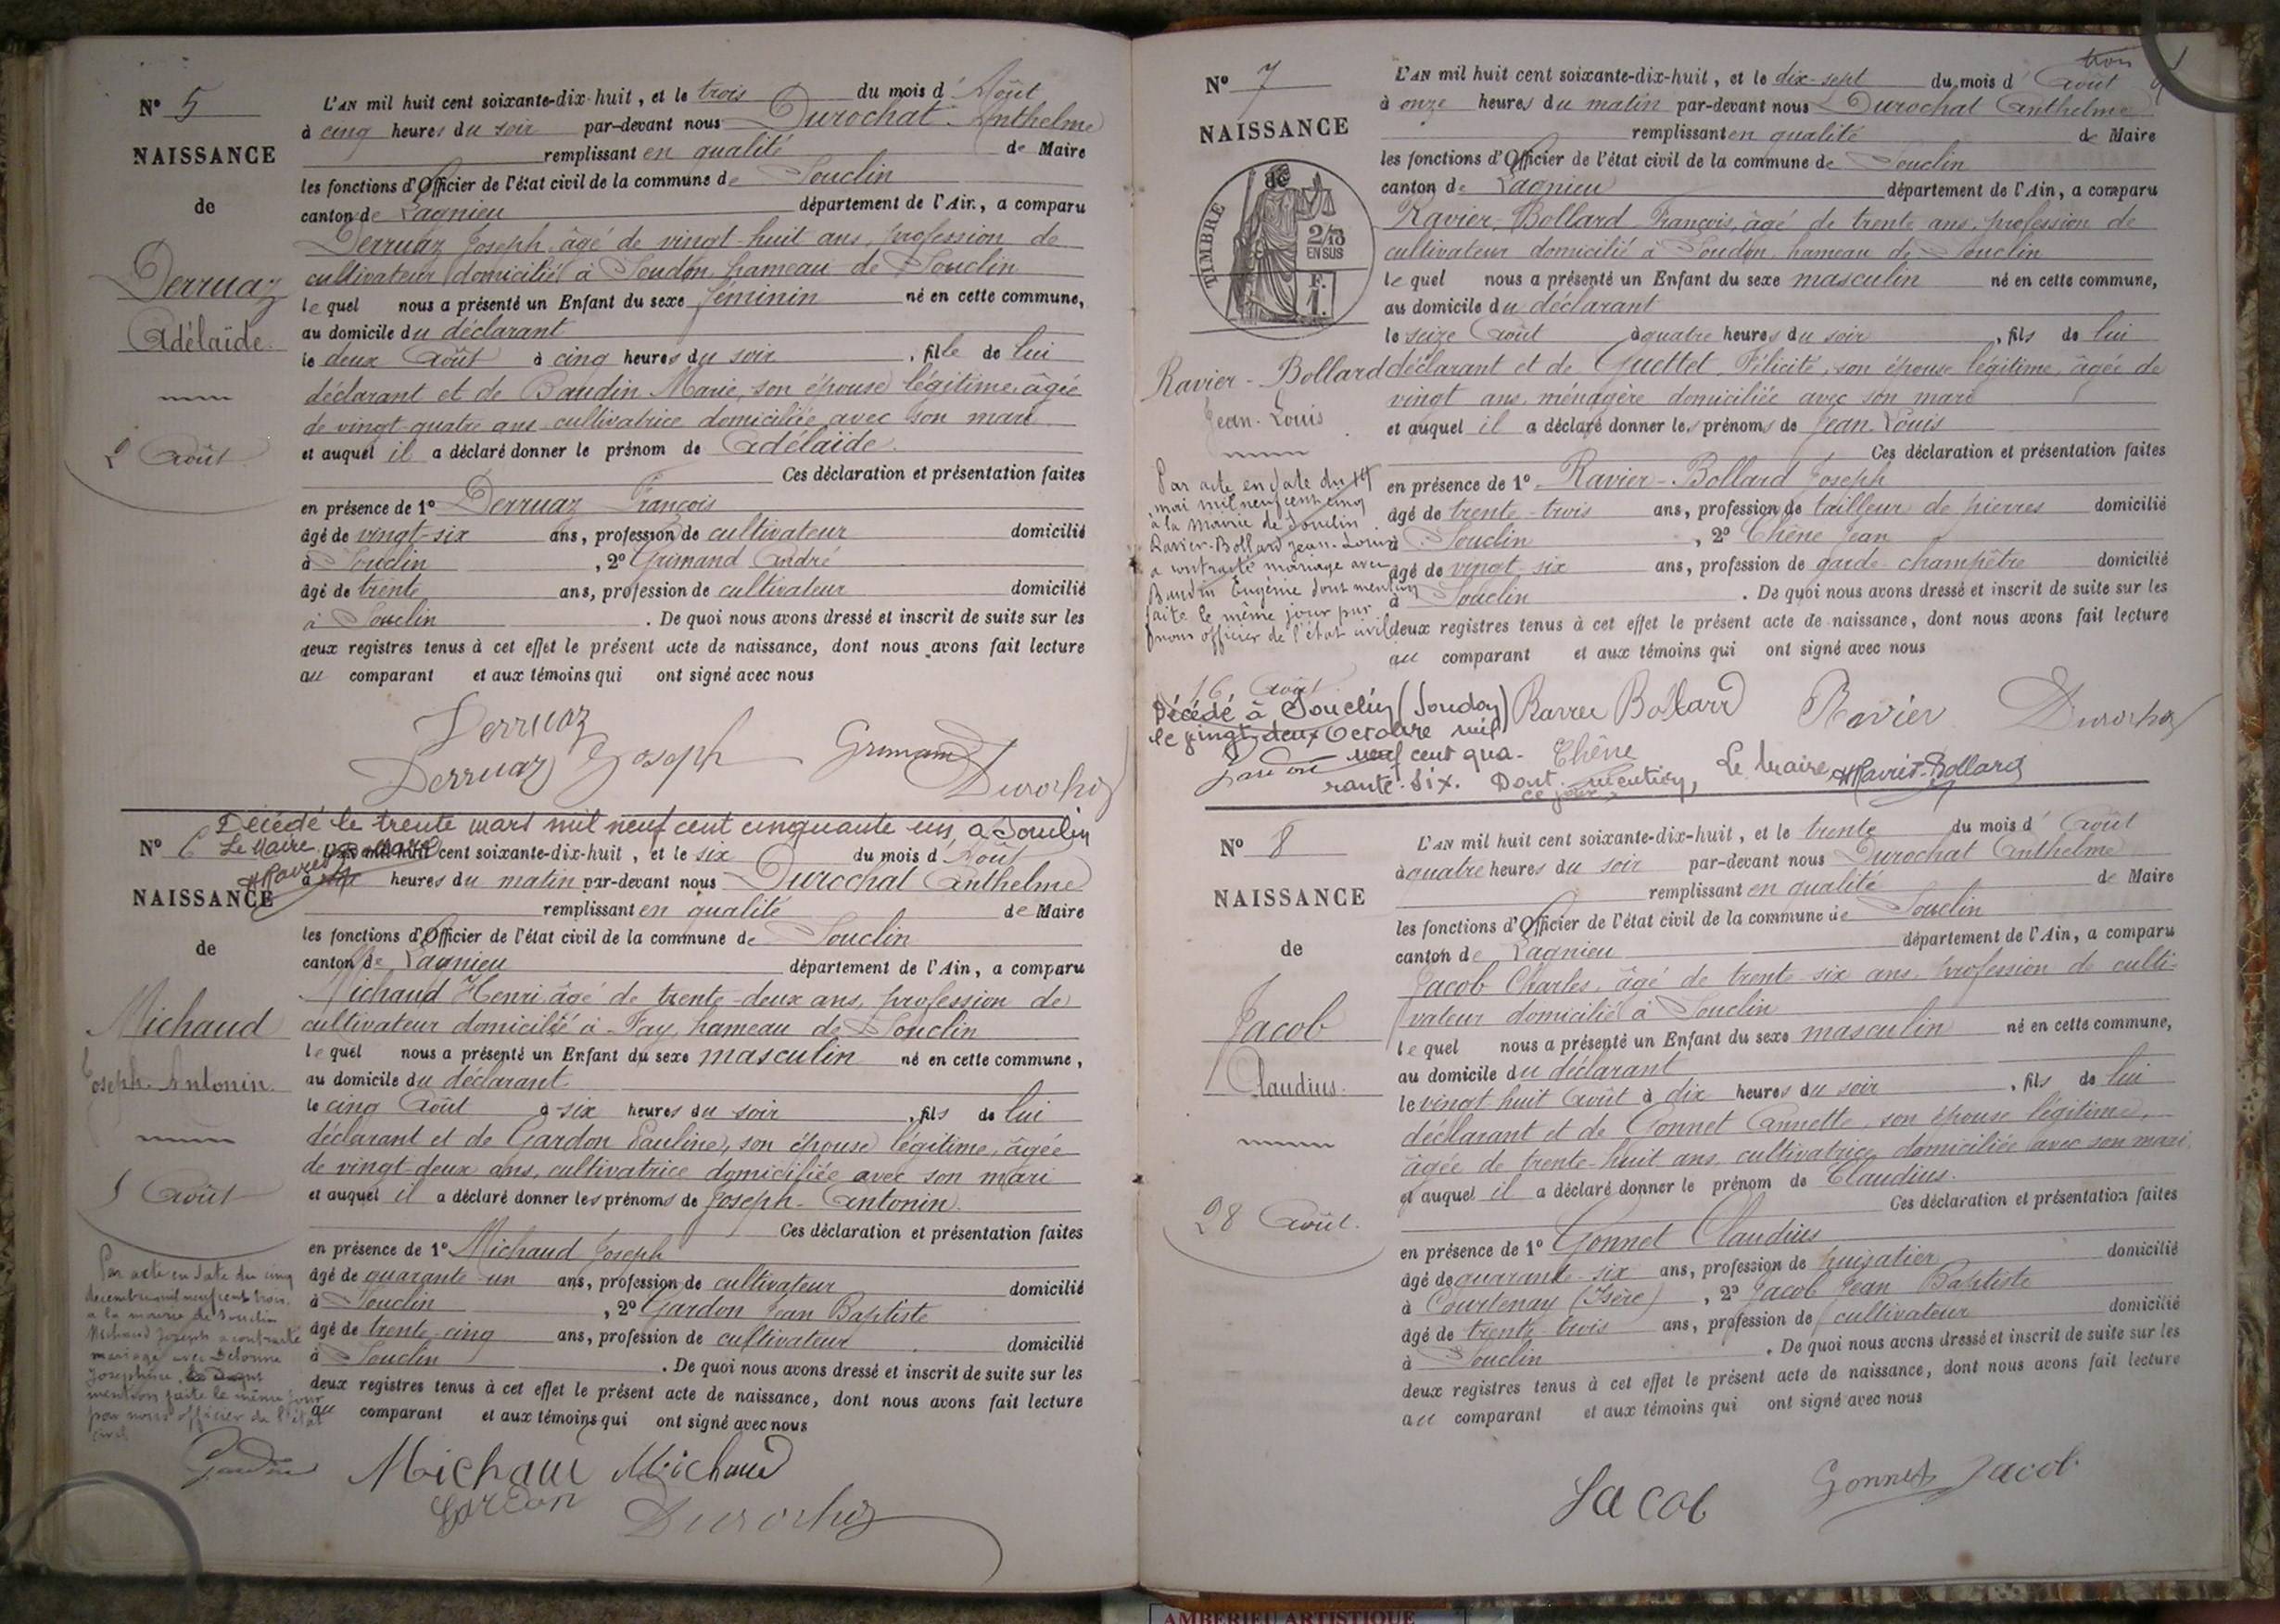 N° 5
NAISSANCE
de
Derruaz
Adélaïde.
2 Août
L'AN mil huit cent soixante-dix-huit, et le trois du mois d'Août
à cinq heures du soir par-devant nous Durochat Anthelme
remplissant en qualité de Maire
les fonctions d'Officier de l'état civil de la commune de Souclin
canton de Lagnieu département de l'Ain, a comparu
Derruaz Joseph, âgé de vingt-huit ans, profession de
cultivateur domicilié à Soudon, hameau de Souclin
lequel nous a présenté un Enfant du sexe féminin né en cette commune,
au domicile du déclarant
le deux Août à cinq heures du soir, fille de lui
déclarant et de Baudin Marie, son épouse légitime, âgée
de vingt quatre ans, cultivatrice domiciliée avec son mari
et auquel il a déclaré donner le prénom de Adélaïde.
Ces déclaration et présentation faites
en présence de 1° Derruaz François
âgé de vingt-six ans, profession de cultivateur domicilié
à Souclin, 2° Grimand André
âgé de trente ans, profession de cultivateur domicilié
à Souclin. De quoi nous avons dressé et inscrit de suite sur les
deux registres tenus à cet effet le présent acte de naissance, dont nous avons fait lecture
au comparant et aux témoins qui ont signé avec nous
Derruaz
Derruaz Joseph Grimand Durochat
Décédé le trente mars mil neuf cent cinquante un, à Souclin
Le Maire
N° 6
NAISSANCE
de
Michaud
Joseph-Antonin.
5 Août
Par acte en date du cinq
décembre mil neuf cent trois,
à la mairie de Souclin
Michaud Joseph a contracté
mariage avec
Joséphine, dont
mention faite le même jour
par nous officier de l'état
civil
L'AN mil huit cent soixante-dix-huit, et le six du mois d'Août
à heures du matin par-devant nous Durochat Anthelme
remplissant en qualité de Maire
les fonctions d'Officier de l'état civil de la commune de Souclin
canton de Lagnieu département de l'Ain, a comparu
Michaud Henri, âgé de trente-deux ans, profession de
cultivateur domicilié à Fay, hameau de Souclin
lequel nous a présenté un Enfant du sexe masculin né en cette commune,
au domicile du déclarant.
le cinq Août à six heures du soir, fils de lui
déclarant et de Gardon Pauline, son épouse légitime, âgée
de vingt-deux ans, cultivatrice domiciliée avec son mari
et auquel il a déclaré donner les prénoms de Joseph-Antonin.
Ces déclaration et présentation faites
en présence de 1° Michaud Joseph
âgé de quarante un ans, profession de cultivateur domicilié
à Souclin, 2° Gardon Jean Baptiste
âgé de trente-cinq ans, profession de cultivateur domicilié
à Souclin. De quoi nous avons dressé et inscrit de suite sur les
deux registres tenus à cet effet le présent acte de naissance, dont nous avons fait lecture
au comparant et aux témoins qui ont signé avec nous
Michaud Michaud
Gardon Durochat
N° 7
NAISSANCE
de
TIMBRE
2/10
EN SUS
F.
1.
Ravier-Bollard
Jean-Louis
Par acte en date du
mai mil neuf cent cinq
à la mairie de Souclin
Ravier-Bollard Jean-Louis
a contracté mariage avec
Baudin Eugénie dont mention
faite le même jour par
nous officier de l'état civil
16 Août
Décédé à Souclin (Soudon)
le vingt-deux Octobre mil
neuf cent qua-
rante-six. Dont mention,
ce jour
Le Maire, Ravier-Bollard
L'AN mil huit cent soixante-dix-huit, et le dix-sept du mois d'Août
à onze heures du matin par-devant nous Durochat Anthelme
remplissant en qualité de Maire
les fonctions d'Officier de l'état civil de la commune de Souclin
canton de Lagnieu département de l'Ain, a comparu
Ravier-Bollard François, âgé de trente ans, profession de
cultivateur domicilié à Soudon, hameau de Souclin
lequel nous a présenté un Enfant du sexe masculin né en cette commune,
au domicile du déclarant
le seize Août à quatre heures du soir, fils de lui
déclarant et de Guettet Félicité, son épouse légitime, âgée de
vingt ans, ménagère domiciliée avec son mari
et auquel il a déclaré donner les prénoms de Jean-Louis
Ces déclaration et présentation faites
en présence de 1° Ravier-Bollard Joseph
âgé de trente-trois ans, profession de tailleur de pierres domicilié
à Souclin, 2° Chêne Jean
âgé de vingt-six ans, profession de garde-champêtre domicilié
à Souclin. De quoi nous avons dressé et inscrit de suite sur les
deux registres tenus à cet effet le présent acte de naissance, dont nous avons fait lecture
au comparant et aux témoins qui ont signé avec nous
Ravier Bollard Ravier Durochat
Chêne
N° 8
NAISSANCE
de
Jacob
Claudius.
28 Août.
L'AN mil huit cent soixante-dix-huit, et le trente du mois d'Août
à quatre heures du soir par-devant nous Durochat Anthelme
remplissant en qualité de Maire
les fonctions d'Officier de l'état civil de la commune de Souclin
canton de Lagnieu département de l'Ain, a comparu
Jacob Charles, âgé de trente-six ans, profession de culti-
vateur domicilié à Souclin
lequel nous a présenté un Enfant du sexe masculin né en cette commune,
au domicile du déclarant
le vingt huit Août à dix heures du soir, fils de lui
déclarant et de Gonnet Annette, son épouse légitime,
âgée de trente-huit ans, cultivatrice domiciliée avec son mari,
et auquel il a déclaré donner le prénom de Claudius.
Ces déclaration et présentation faites
en présence de 1° Gonnet Claudius
âgé de quarante-six ans, profession de domicilié
à Courtenay (Isère), 2° Jacob Jean Baptiste
âgé de trente-trois ans, profession de cultivateur domicilié
à Souclin. De quoi nous avons dressé et inscrit de suite sur les
deux registres tenus à cet effet le présent acte de naissance, dont nous avons fait lecture
au comparant et aux témoins qui ont signé avec nous
Jacob Gonnet Jacob
AMBERIEU ARTISTIQUE